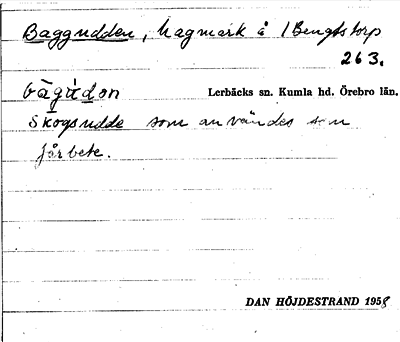 Baggudden, hagmark å 1 Bengtstorp
263.
bàgúdon Lerbäcks sn. Kumla hd. Örebro län.
Skogsudde som användes som
fårbete.
DAN HÖJDESTRAND 1958